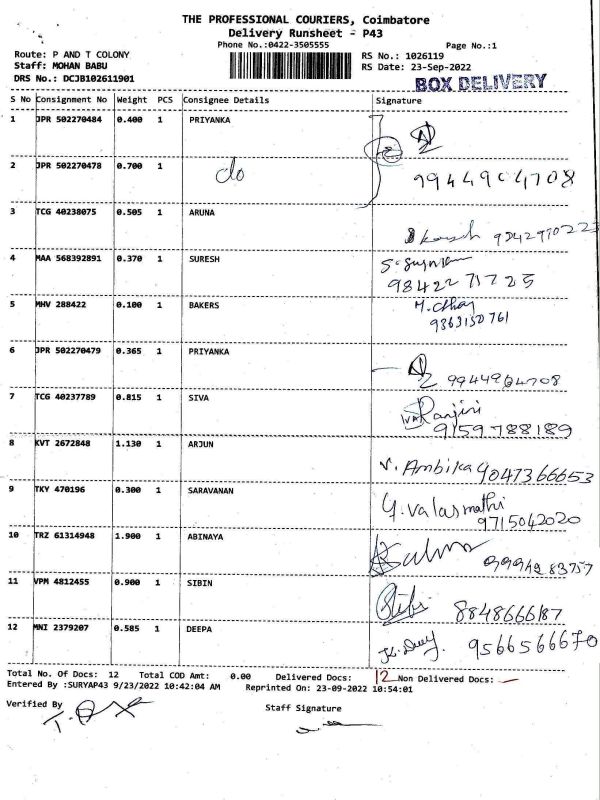 THE PROFESSIONAL COURIERS, Coimbatore
Delivery Runsheet - P43
Phone No.:0422-3505555
Page No.:1
Route: P AND T COLONY
RS No.: 1026119
Staff: MOHAN BABU
RS Date: 23-Sep-2022
DRS No.: DCJB102611901
BOX DELIVERY
S No Consignment No Weight PCS Consignee Details Signature
1 JPR 502270484 0.400 1 PRIYANKA
2 JPR 502270478 0.700 1 do 9944904708
3 TCG 40238075 0.505 1 ARUNA
4 MAA 568392891 0.370 1 SURESH
9842271725
5 MHV 288422 0.100 1 BAKERS
9363150761
6 JPR 502270479 0.365 1 PRIYANKA
9944904708
7 TCG 40237789 0.815 1 SIVA Ranjini
9159788189
8 KVT 2672848 1.130 1 ARJUN
V. Ambika 9047366653
9 TKY 470196 0.300 1 SARAVANAN
Y. Valarmathi
9715042020
10 TRZ 61314948 1.900 1 ABINAYA
11 VPM 4812455 0.900 1 SIBIN
Sibi 8848666187
12 MNI 2379207 0.585 1 DEEPA
9566566670
Total No. Of Docs: 12 Total COD Amt: 0.00 Delivered Docs: 12 Non Delivered Docs: -
Entered By :SURYAP43 9/23/2022 10:42:04 AM Reprinted On: 23-09-2022 10:54:01
Verified By
Staff Signature